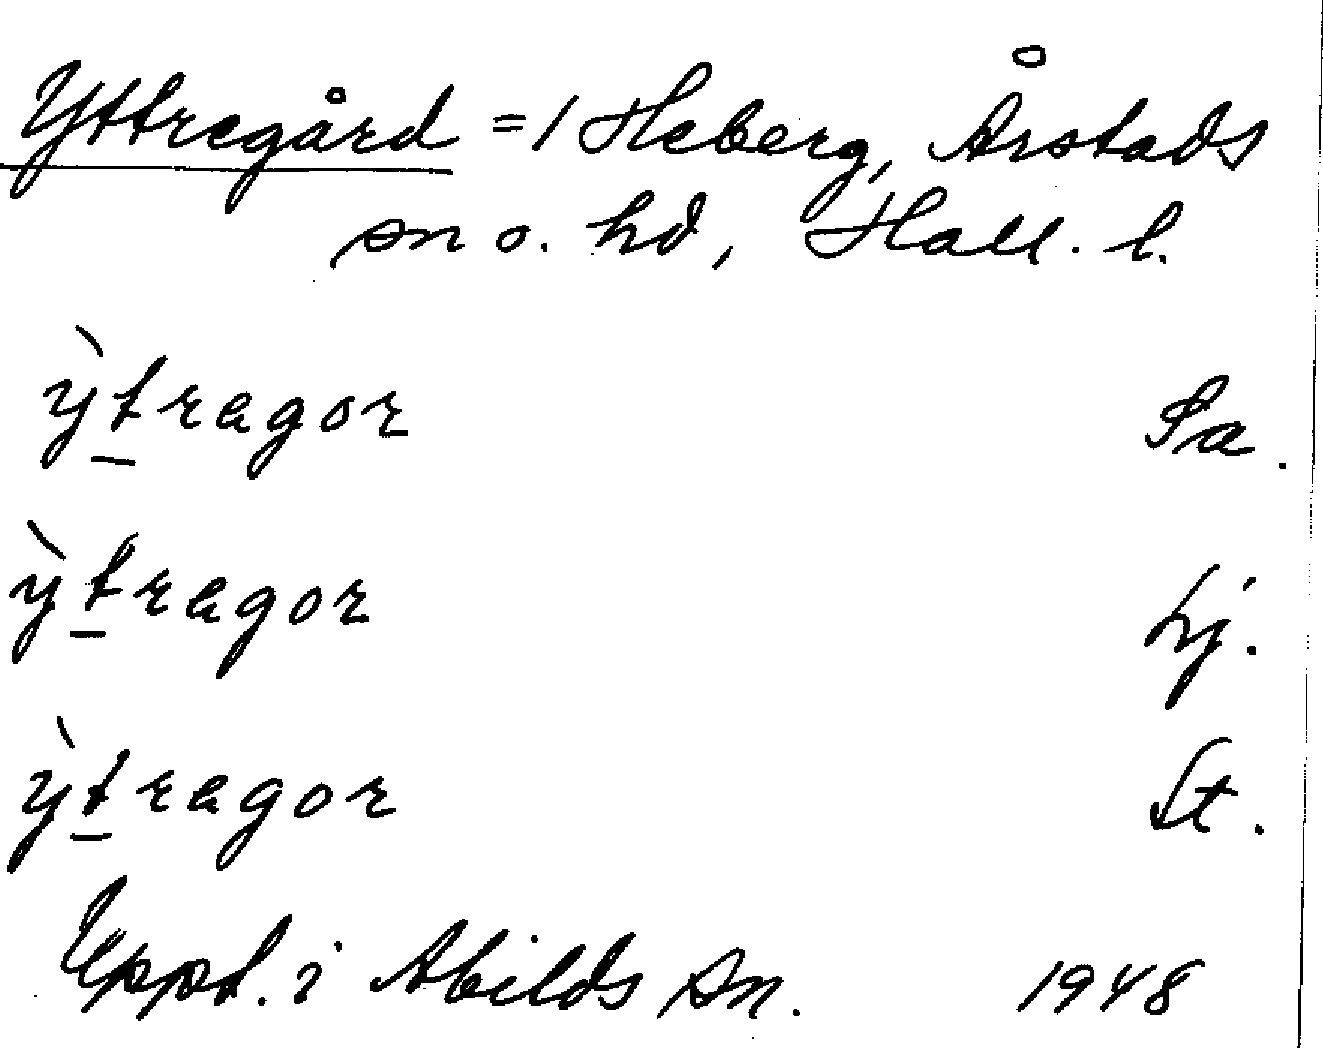 Yttregård =/ Heberg, Årstads
sn o. hd, Hall. l.
ỳtragor Sa.
ỳtragor Lj.
ỳtragor St.
Uppt. i Abilds sn. 1948